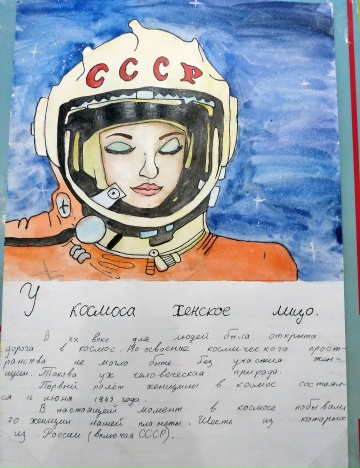 СССР
У космоса женское лицо.
В XX веке для людей была открыта
дорога в космос. Но освоение космического прост-
ранства не могло быть без участия жен-
щин. Такова уж человеческая природа.
Первый полёт женщины в космос состоял-
ся 16 июня 1963 года.
В настоящий момент в космосе побывали
70 женщин нашей планеты. Шесть из которых
из России (включая СССР).